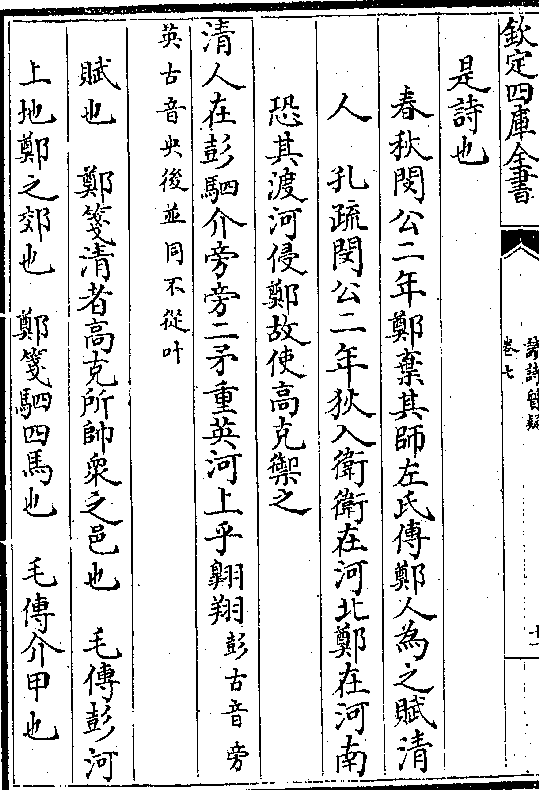 欽定四庫全書
讀詩質疑
卷七
十一
是詩也
春秋閔公二年鄭棄其師左氏傳鄭人為之賦清
人　孔疏閔公二年狄入衛衛在河北鄭在河南
恐其渡河侵鄭故使高克禦之
清人在彭駟介旁旁二矛重英河上乎翺翔彭古音旁
英古音央後並同不從叶
賦也　鄭箋清者高克所帥衆之邑也　毛傳彭河
上地鄭之郊也　鄭箋駟四馬也　毛傳介甲也